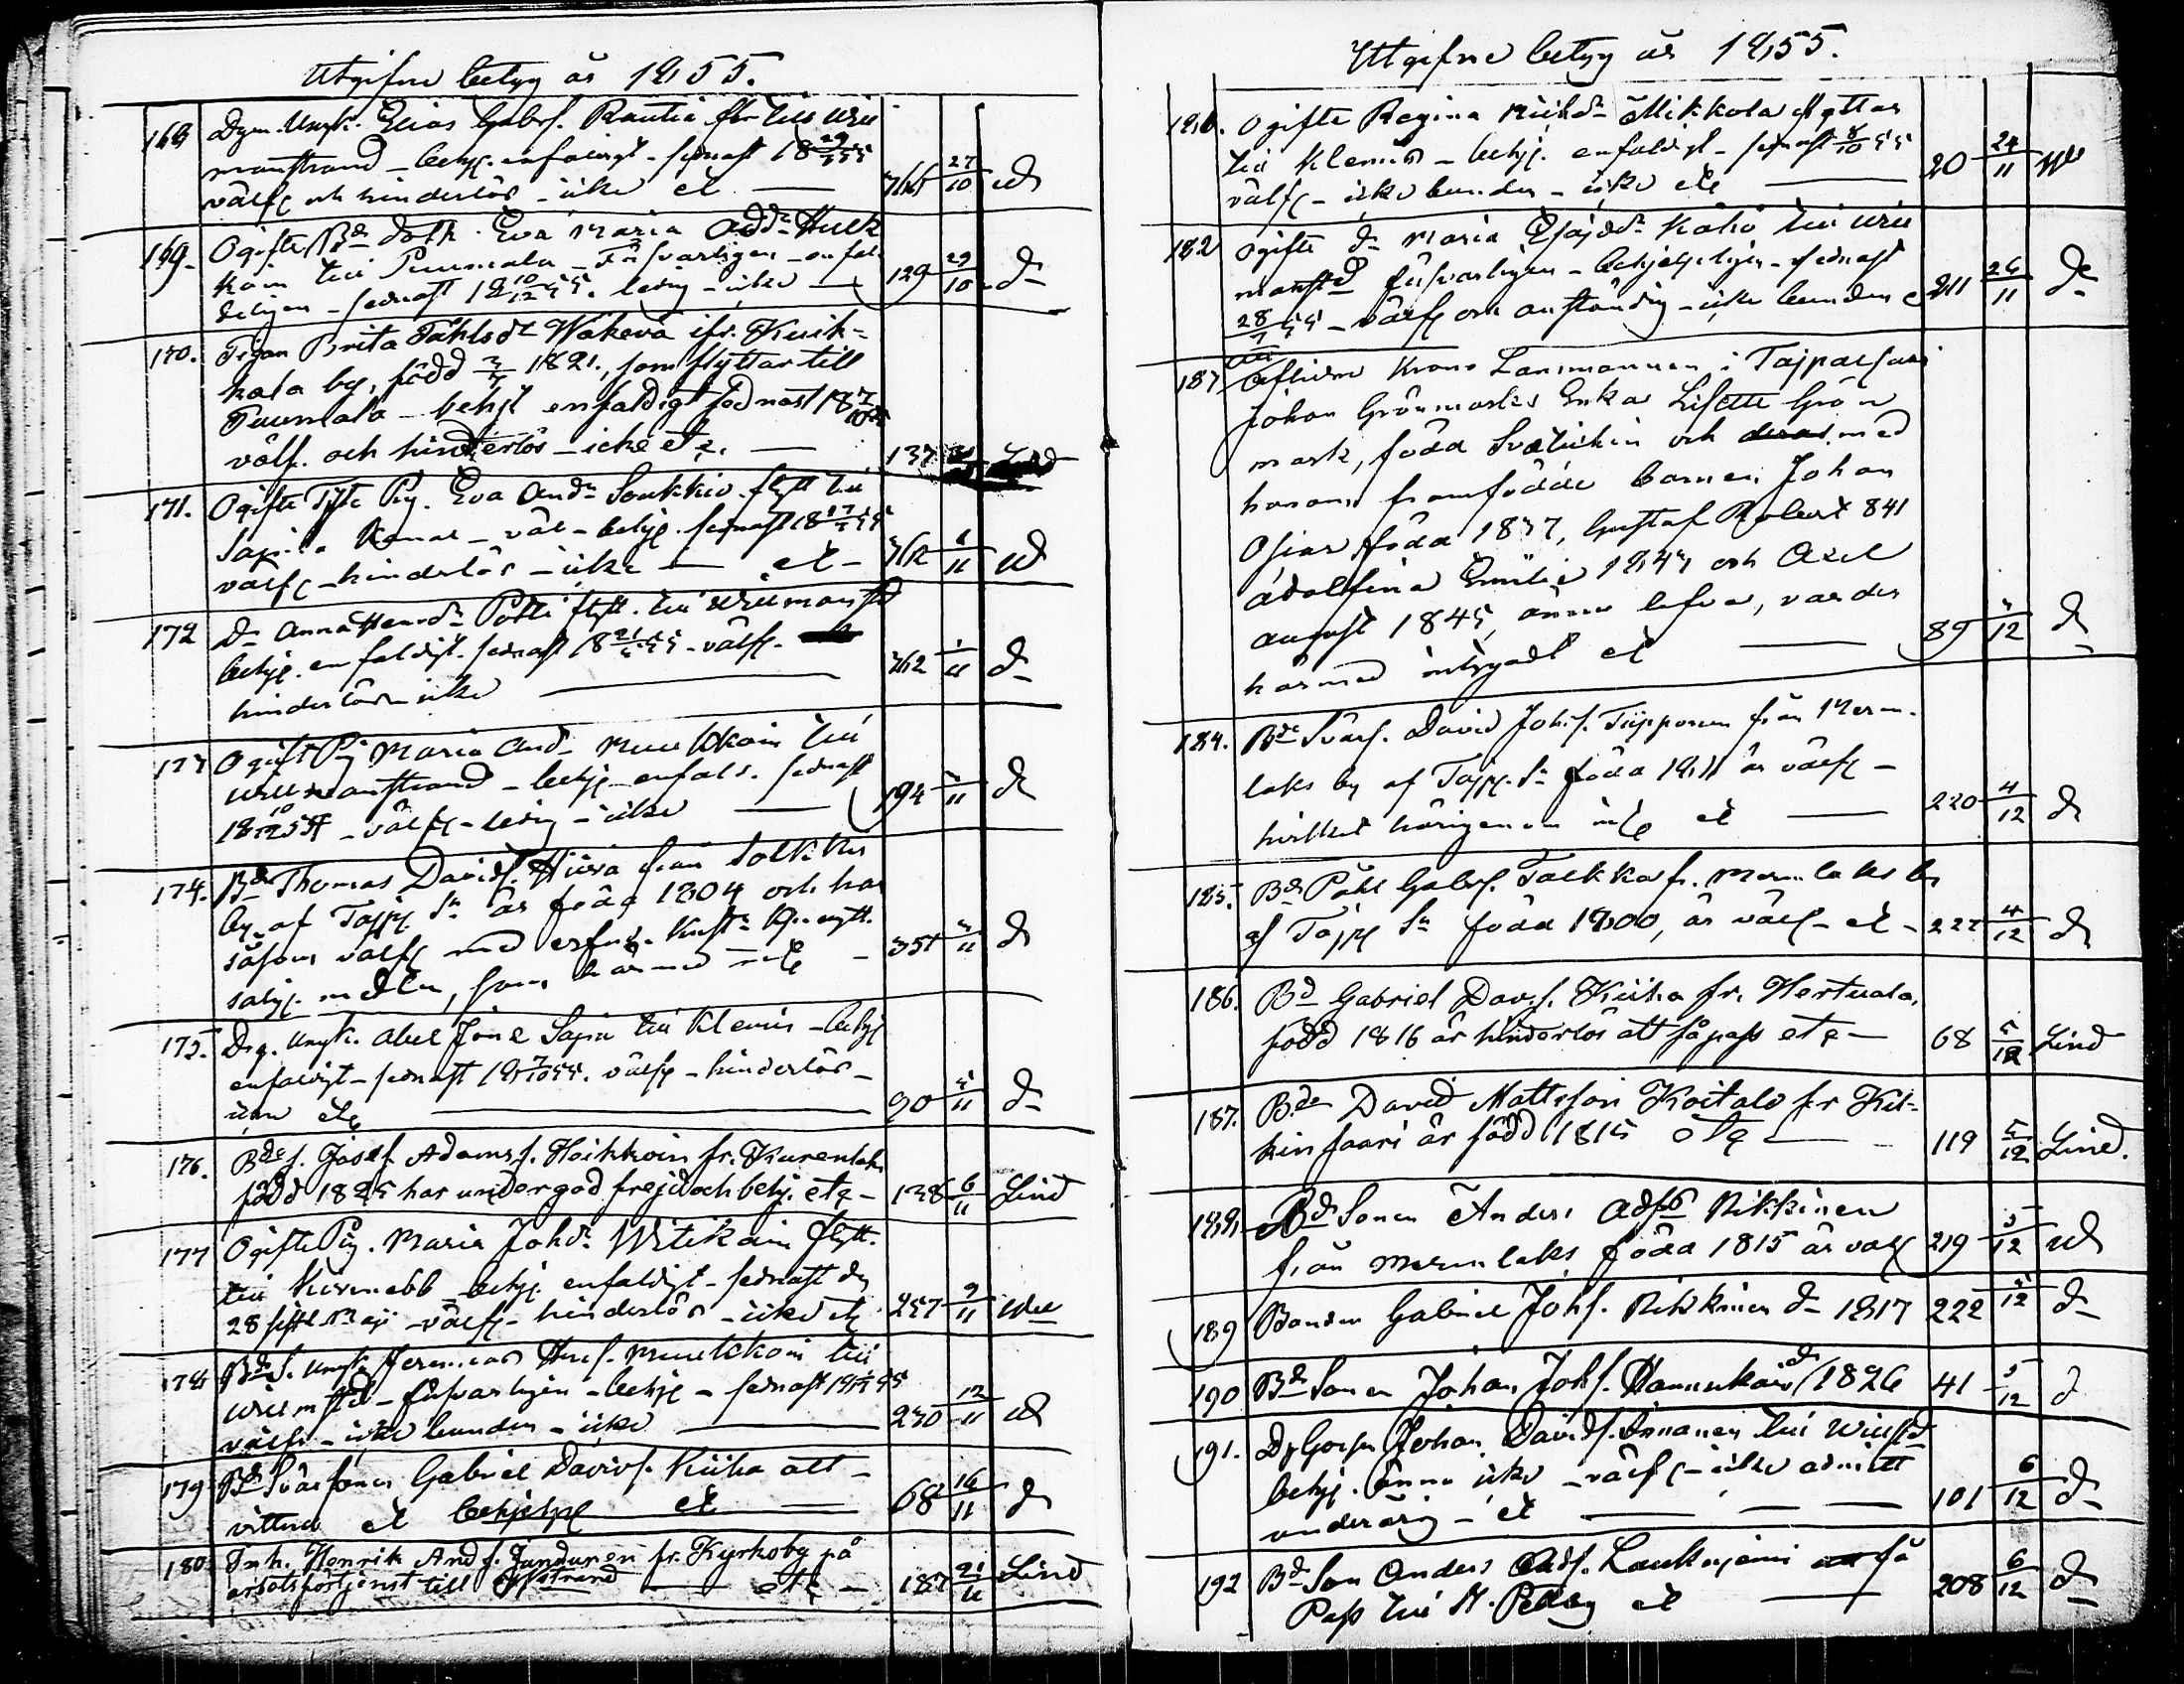 Utgifne betyg år 1855.
168 Dgm. Ungk. Elias Gabrs. Rautia flr till Will
manstrand - behj. enfaldigt - sednast 18 29/5 55
välf och hinderlös - icke et 766 27/10 Wd
169. Ogifte Bde dotr. Eva Maria Add. Hulk
koin till Puumala - Försvarligen - enfal-
deligen - sednast 18 10/12 55. ledig - icke 129 29/10 do
170. Pigan Brita Påhlsdr Wäkevä ifr. Kuik-
kala by, född 3/7 1821, som flyttar till
Puumala - behjt enfaldigt sednast 18 7/10 55
välf. och hinderlös - icke etc. 137 Lind
171. Ogifte Pig. Eva Andr Soukkio flytt till
Komar - väl - behje sednast 18 17/5 55
välf - hinderlös - icke et - 762 1/11 Wd
172 do Anna Henrdr Potti flytt. till Willmanstrd
behje. enfaldigt. sednast 18 21/5 55 - välf.
hinderlös icke 762 1/11 do
173 Ogift Pig Maria Andr Muukkoin till
Willmanstrand - behje enfald. sednast
18 10/12 54 - välf - ledig - icke 194 3/11 do
174. Bde Thomas Davids. Hiera från Solkkis
by af Tajp. Sn är född 1804 och har
såsom välf med
salige medlen, som härmed 351 3/11 do
175. Dg. Ungk. Abel Jöns Sapia till Klemis - behje
enfaldigt - sednast 18 7/10 55. välf - hinderlös -
etc 90 5/11 do
176. Bde s. Josef Adams s. Heikkoin fr. Kurenlaks
född 1825 har undergod frejd och behj. etc - 138 6/11 Lind
177 Ogifte Pig. Maria Johdr Witikain flytt.
till Kirvmebb - behje enfaldigt - sednast den
28 sistl. Maji - välf - hinderlös - icke etc 257 9/11 Wd
178 Bde S. Ungk. Jeremias Hens. Muukkoin till
Willmstrd - försvarligen - behje - sednast 18 55
välf - icke bunden - icke 230 12/11 Wd
179 Bde Svärsonen Gabriel Davids. Kiiha att
vittna et behjelpl et 68 16/11 do
180. Inh. Henrik And s. Junduren fr. Kyrkoby på
arbetsförtjenst till Wstrand etc - 187 21/11 Lind
Utgifne betyg år 1855.
181. Ogifte Regina Mickdr Mikkola flyttar
till Klemis - behje. enfaldigt - sednast 8/10 55
välf - icke bunden - icke etc 20 24/11 Wd
182 Ogifte dn Maria Esajdr Käkö till Will
manstd försvarligen - behjelpligen - sednast
28/7 55 - välf och anständig - icke bunden 211 26/11 do
183 Aflidne Krono Lansmannen i Tajpalsaari
Johan Grönmarks Enka Lisette Grön
mark, född Svetichin och med
honom framfödde barnen Johan
Osias född 1837, Gustaf Robert 841
Adolfina Emilie 1843 och Axel
August 1845, ännu lefva, varder
härmed intygadt et 89 4/12 do
184. Bde Svärs. David Johs. Tiipponen från Merm-
laks by af Tajp. Sn född 1811 är välf -
hvilket härigenom et 220 4/12 do
185. Bde Påhl Gabrs. Talkka fr. Mermlaks by
af Tajp Sn född 1800, är välf - et - 227 4/12 do
186. Bde Gabriel Dav. s. Kiiha fr. Hertuala,
född 1816 är hinderlös att få pass etc - 68 5/12 Lind
187. Bde David Mattsson Koitalo fr Kil-
kinsaari är född 1815 etc 119 5/12 Lind.
188. Bde Sonen Anders Adss Rikkinen
från Mermlaks född 1815 är välf 219 5/12 Wd
189 Bonden Gabriel Johs. Rikkinen do 1817 222 5/12 do
190 Bde Sonen Johan Johs. Hannukain do 1826 41 5/12 do
191. Dg Gossen Johan Davids. Innanen till Willstd
behje. ännu icke - välf - icke admitt
underårig - et 101 6/12 do
192 Bde Son Anders Adss. Laukajemi få
Pass till St. Petbrg et 208 6/12 do